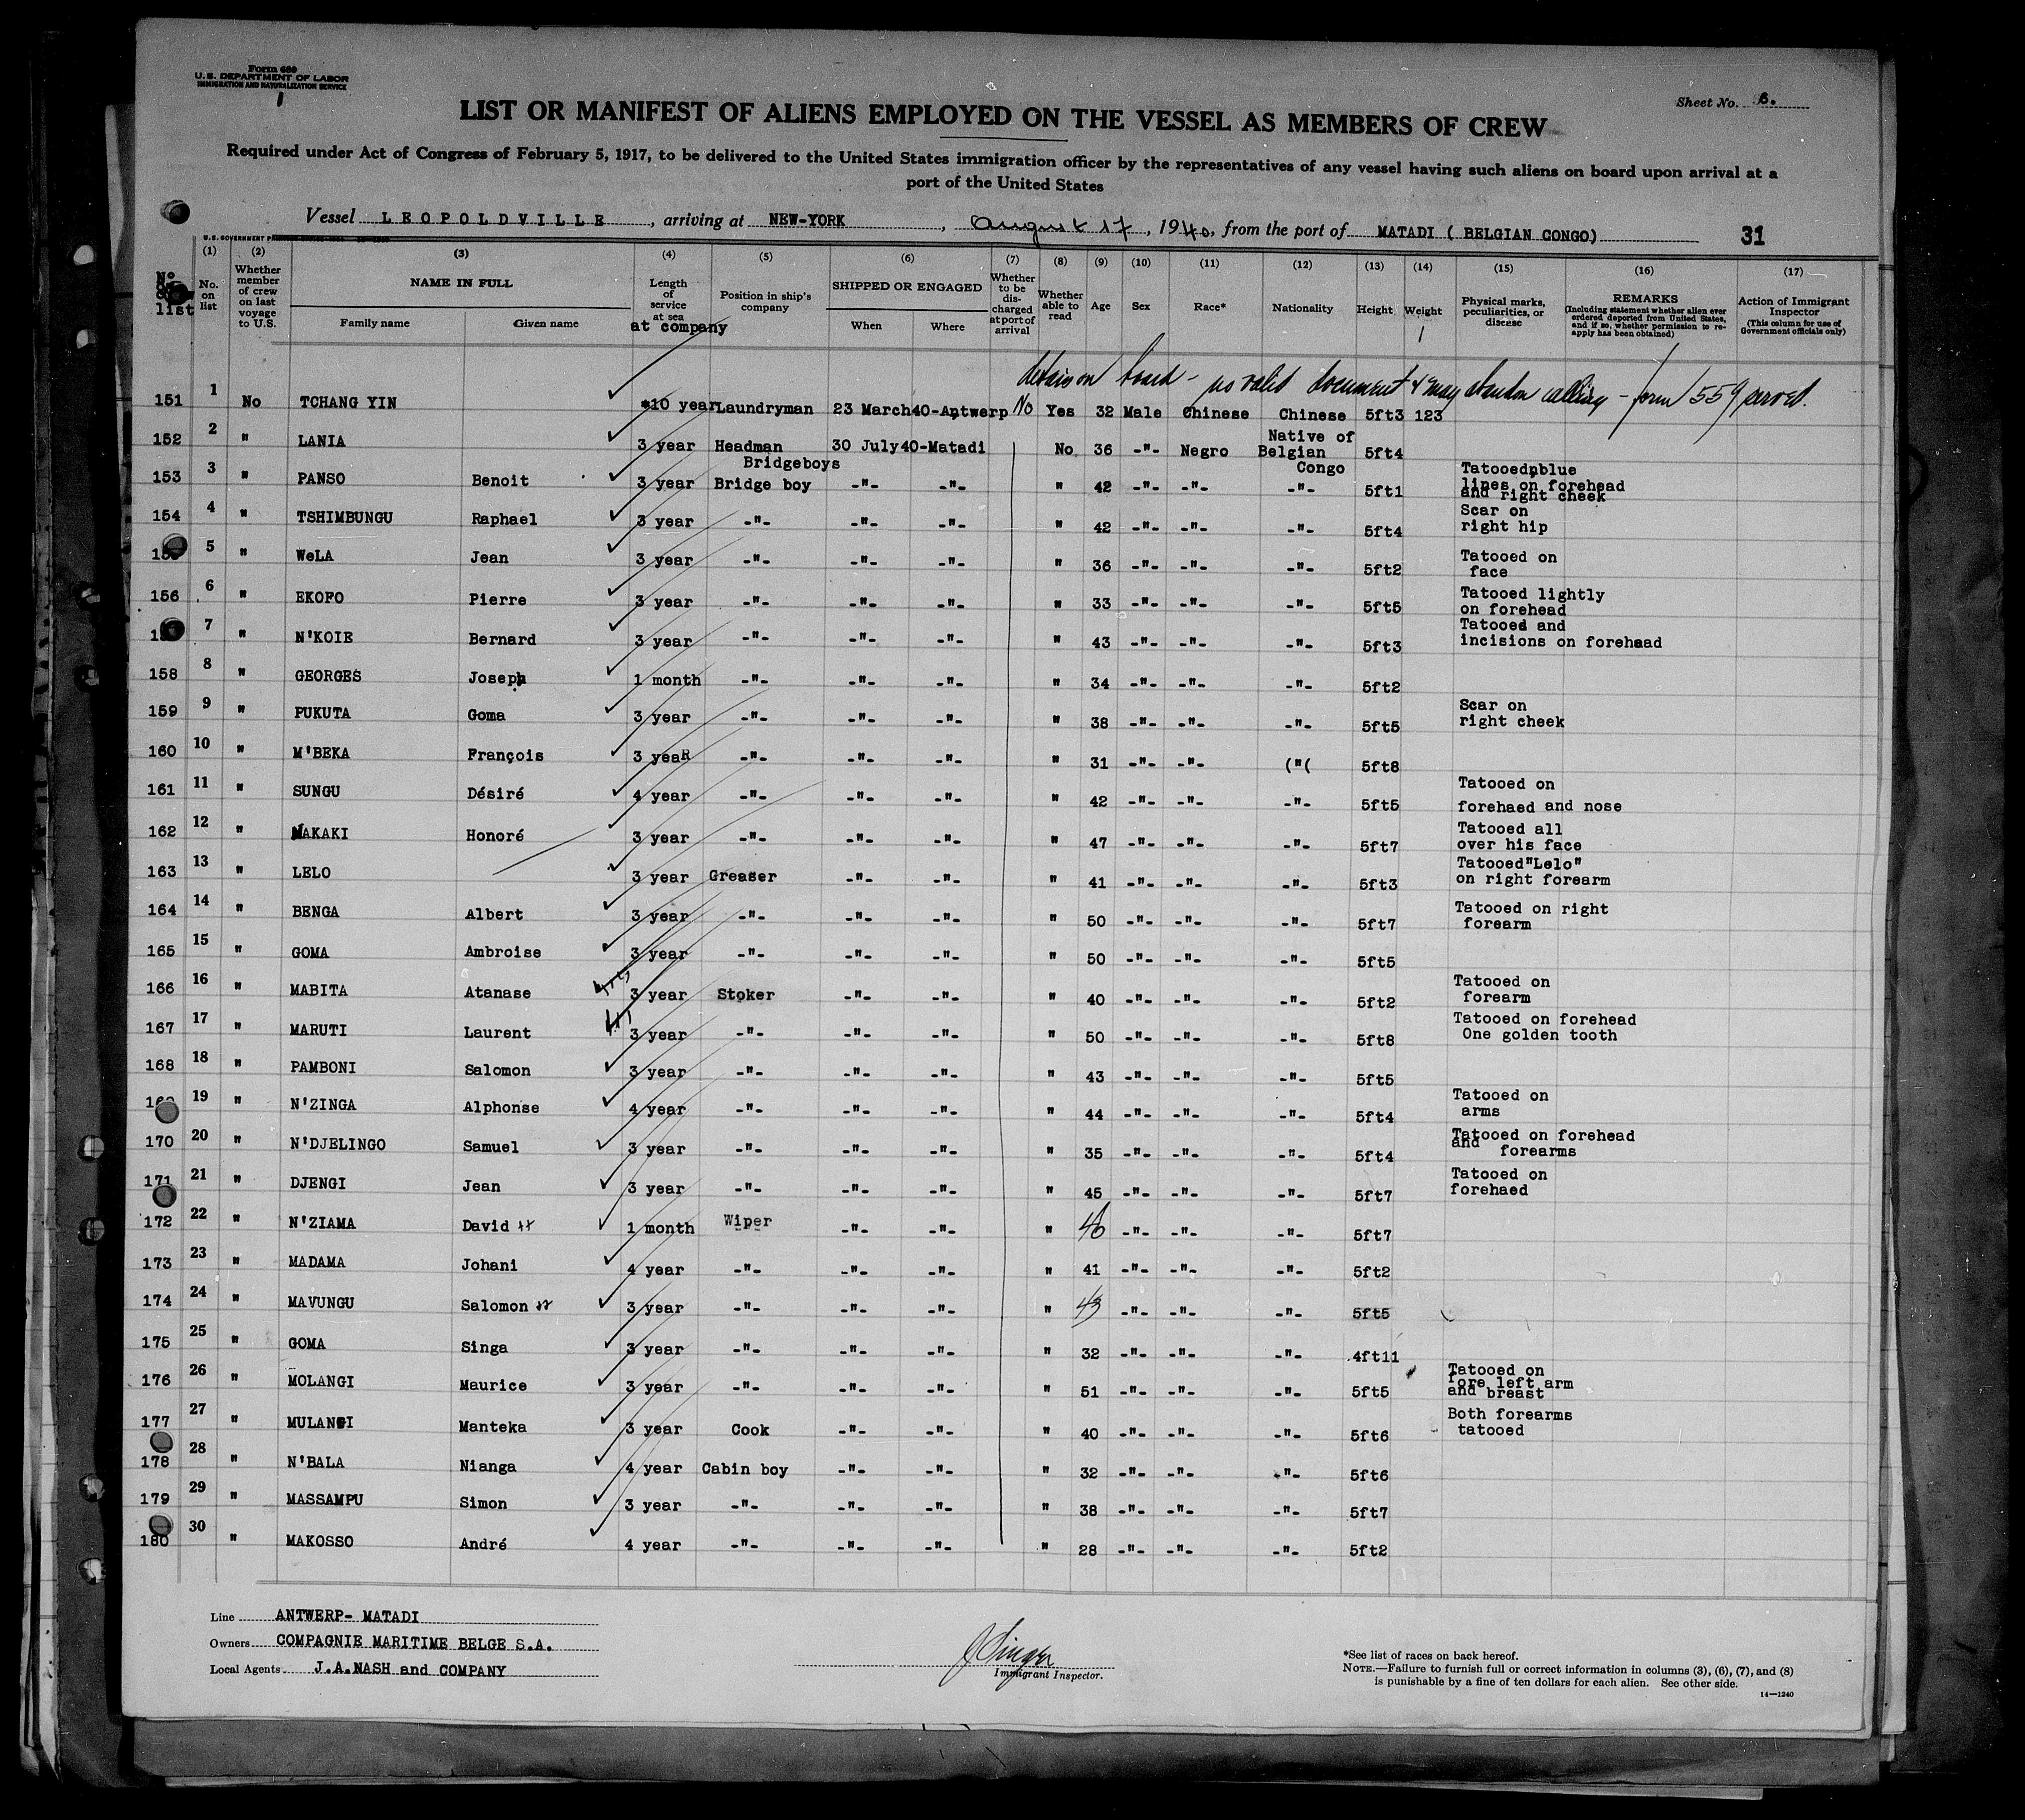 Form 680
U.S. DEPARTMENT OF LABOR
IMMIGRATION AND NATURALIZATION SERVICE
Sheet No. 6.
LIST OR MANIFEST OF ALIENS EMPLOYED ON THE VESSEL AS MEMBERS OF CREW
Required under Act of Congress of February 5, 1917, to be delivered to the United States immigration officer by the representatives of any vessel having such aliens on board upon arrival at a
port of the United States
Vessel LEOPOLDVILLE, arriving at NEW-YORK, August 17, 1940, from the port of MATADI ( BELGIAN CONGO) 31
(1) (2) (3) (4) (5) (6) (7) (8) (9) (10) (11) (12) (13) (14) (15) (16) (17)
No. on list
Whether member of crew on last voyage to U.S.
NAME IN FULL
Family name Given name
Length of service at sea
at company
Position in ship's company
SHIPPED OR ENGAGED
When Where
Whether to be discharged at port of arrival
Whether able to read
Age
Sex
Race*
Nationality
Height
Weight
Physical marks, peculiarities, or disease
REMARKS
(Including statement whether alien ever ordered deported from United States, and if so, whether permission to reapply has been obtained)
Action of Immigrant Inspector
(This column for use of Government officials only)
detain on board - no valid document & may abandon calling - form 559 served.
151 1 No TCHANG YIN *10 year Laundryman 23 March40-Antwerp No Yes 32 Male Chinese Chinese 5ft3 123
152 2 " LANIA 3 year Headman Bridgeboys 30 July40-Matadi No 36 -"- Negro Native of Belgian Congo 5ft4
153 3 " PANSO Benoit 3 year Bridge boy -"- -"- " 42 -"- -"- -"- 5ft1 Tatooed blue lines on forehead and right cheek
154 4 " TSHIMBUNGU Raphael 3 year -"- -"- -"- " 42 -"- -"- -"- 5ft4 Scar on right hip
5 " WeLA Jean 3 year -"- -"- -"- " 36 -"- -"- -"- 5ft2 Tatooed on face
156 6 " EKOFO Pierre 3 year -"- -"- -"- " 33 -"- -"- -"- 5ft5 Tatooed lightly on forehead
7 " N'KOIE Bernard 3 year -"- -"- -"- " 43 -"- -"- -"- 5ft3 Tatooed and incisions on forehead
158 8 " GEORGES Joseph 1 month -"- -"- -"- " 34 -"- -"- -"- 5ft2
159 9 " PUKUTA Goma 3 year -"- -"- -"- " 38 -"- -"- -"- 5ft5 Scar on right cheek
160 10 " M'BEKA François 3 yeaR -"- -"- -"- " 31 -"- -"- ("( 5ft8
161 11 " SUNGU Désiré 4 year -"- -"- -"- " 42 -"- -"- -"- 5ft5 Tatooed on forehaed and nose
162 12 " MAKAKI Honoré 3 year -"- -"- -"- " 47 -"- -"- -"- 5ft7 Tatooed all over his face
163 13 " LELO 3 year Greaser -"- -"- " 41 -"- -"- -"- 5ft3 Tatooed"Lelo" on right forearm
164 14 " BENGA Albert 3 year -"- -"- -"- " 50 -"- -"- -"- 5ft7 Tatooed on right forearm
165 15 " GOMA Ambroise 3 year -"- -"- -"- " 50 -"- -"- -"- 5ft5
166 16 " MABITA Atanase 3 year Stoker -"- -"- " 40 -"- -"- -"- 5ft2 Tatooed on forearm
167 17 " MARUTI Laurent 3 year -"- -"- -"- " 50 -"- -"- -"- 5ft8 Tatooed on forehead One golden tooth
168 18 " PAMBONI Salomon 3 year -"- -"- -"- " 43 -"- -"- -"- 5ft5
19 " N'ZINGA Alphonse 4 year -"- -"- -"- " 44 -"- -"- -"- 5ft4 Tatooed on arms
170 20 " N'DJELINGO Samuel 3 year -"- -"- -"- " 35 -"- -"- -"- 5ft4 Tatooed on forehead and forearms
171 21 " DJENGI Jean 3 year -"- -"- -"- " 45 -"- -"- -"- 5ft7 Tatooed on forehaed
172 22 " N'ZIAMA David 1 month Wiper -"- -"- " 46 -"- -"- -"- 5ft7
173 23 " MADAMA Johani 4 year -"- -"- -"- " 41 -"- -"- -"- 5ft2
174 24 " MAVUNGU Salomon 3 year -"- -"- -"- " 43 -"- -"- -"- 5ft5
175 25 " GOMA Singa 3 year -"- -"- -"- " 32 -"- -"- -"- 4ft11
176 26 " MOLANGI Maurice 3 year -"- -"- -"- " 51 -"- -"- -"- 5ft5 Tatooed on fore left arm and breast
177 27 " MULANGI Manteka 3 year Cook -"- -"- " 40 -"- -"- -"- 5ft6 Both forearms tatooed
178 28 " N'BALA Nianga 4 year Cabin boy -"- -"- " 32 -"- -"- -"- 5ft6
179 29 " MASSAMPU Simon 3 year -"- -"- -"- " 38 -"- -"- -"- 5ft7
180 30 " MAKOSSO André 4 year -"- -"- -"- " 28 -"- -"- -"- 5ft2
Line ANTWERP- MATADI
Owners COMPAGNIE MARITIME BELGE S.A.
Local Agents J.A.NASH and COMPANY
Immigrant Inspector.
*See list of races on back hereof.
NOTE.—Failure to furnish full or correct information in columns (3), (6), (7), and (8)
is punishable by a fine of ten dollars for each alien. See other side.
14—1240